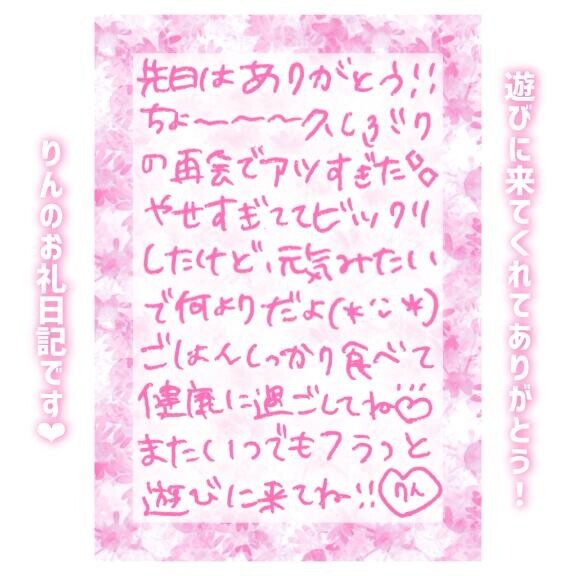 遊びに来てくれてありがとう！
先日はありがとう!!
ちょ〜〜〜〜久しぶり
の再会でアツすぎた
やせすぎててビックリ
したけど、元気みたい
で何よりだよ(*'ᵕ'*)
ごはんしっかり食べて
健康に過ごしてね♡
またいつでもフラっと
遊びに来てね〜!!
りん
りんのお礼日記です❤